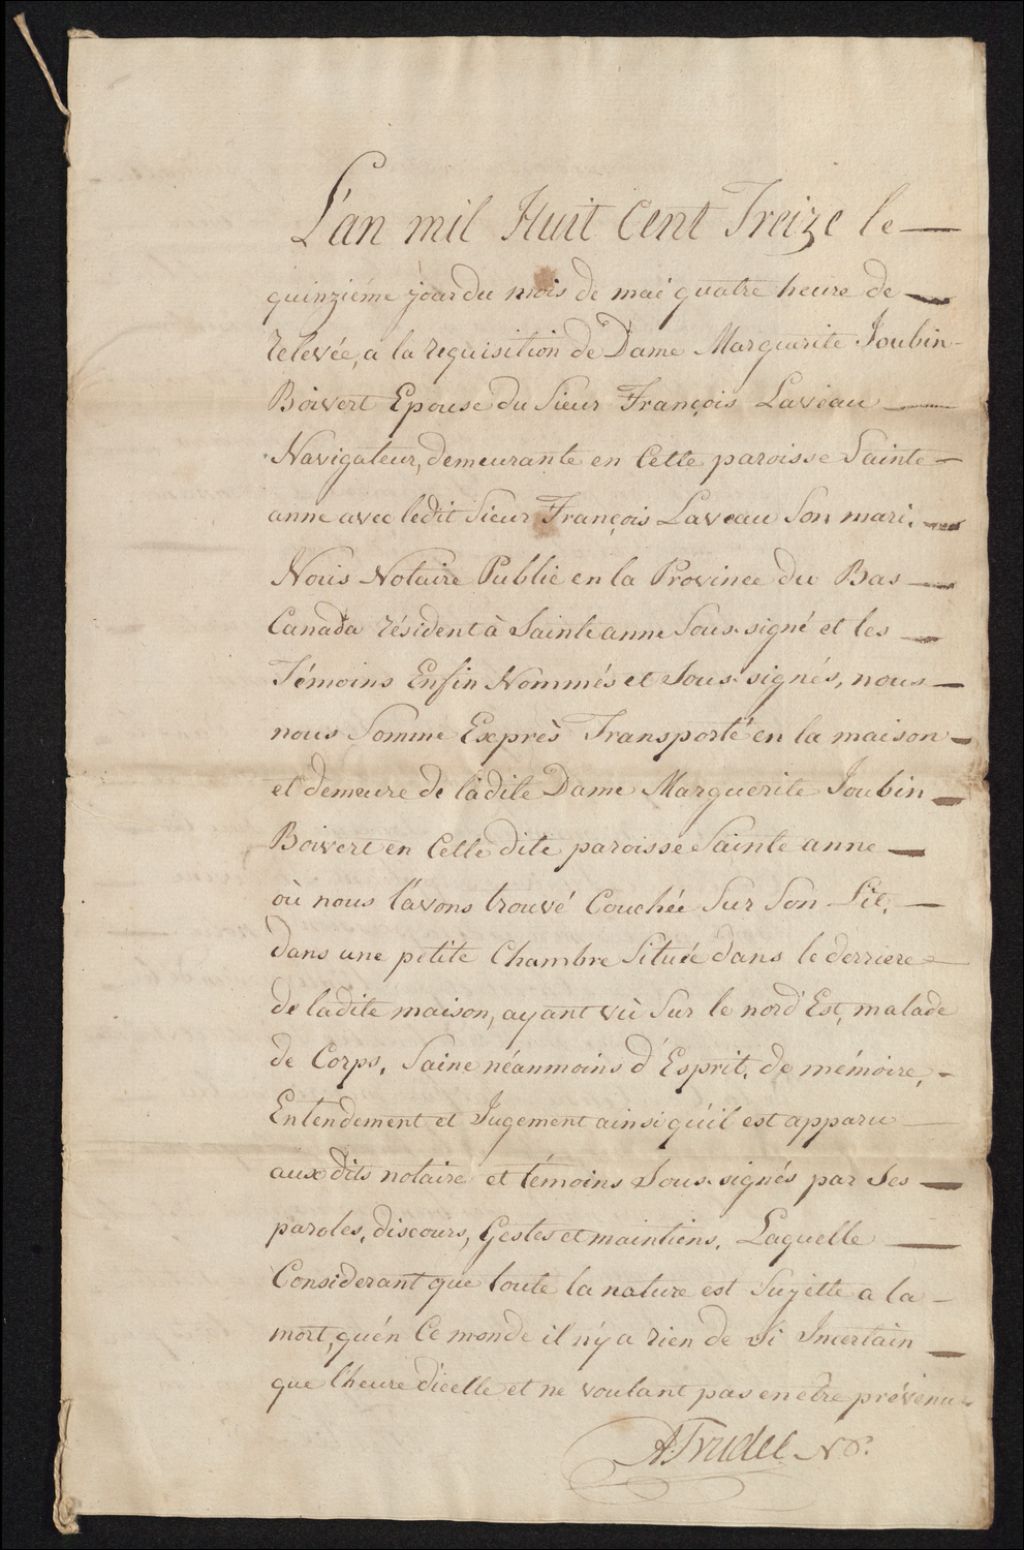 L'an mil Huit Cent Treize le
quinziéme jour du mois de mai quatre heure de
relevée, a la requisition de Dame Marguerite Joubin
Boivert Epouse du Sieur François Laveau
Navigateur, demeurante en Cette paroisse Sainte
anne avec ledit Sieur François Laveau Son mari.
Nous Notaire Public en la Province du Bas
Canada résident à Sainte anne Sous-signé et les
Témoins Enfin Nommés et Sous-signés, nous
nous Somme Exprès Transporté en la maison
et demeure de ladite Dame Marguerite Joubin
Boivert en Cette dite paroisse Sainte anne
où nous l'avons trouvé Couchée Sur Son Lit,
dans une petite Chambre Située dans le derriere
de ladite maison, ayant vù Sur le nord Est, malade
de Corps, Saine néanmoins d'Esprit, de mémoire,
Entendement et Jugement ainsi qu'il est apparu
auxdits notaire et témoins Sous-signés par Ses
paroles, discours, Gestes et maintiens, Laquelle
Considerant que toute la nature est Sujette a la
mort, qu'en Ce monde il n'y a rien de Si Incertain
que l'heure dicelle et ne voulant pas en etre prévenu
A. Trudel N.P.